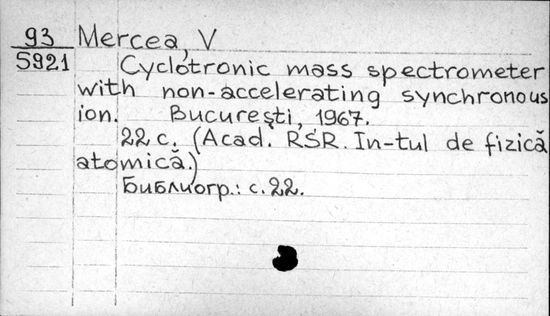 93 Mercea, V
5921 Cyclotronic mass spectrometer
with non-accelerating synchronous
ion. Bucureşti, 1967.
22 c. (Acad. RSR. In-tul de fizică
atomică.)
Библиогр.: с. 22.